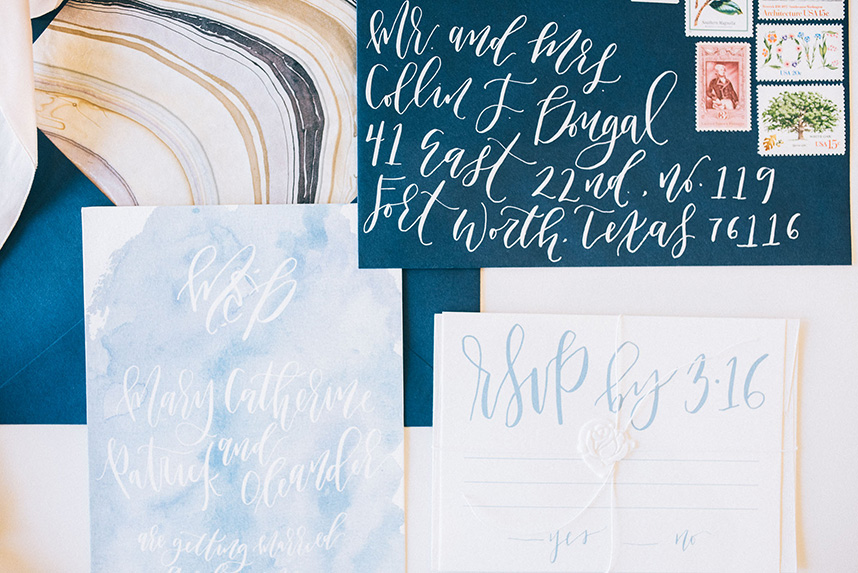 Mr. and Mrs.
Collin J. Dougal
41 East 22nd., no. 119
Fort Worth, Texas 76116
Architecture USA 15c
LOVE
USA 20c
USA 15c
Mary Catherine
and
Patrick Oleander
are getting married
RSVP by 3.16
yes no